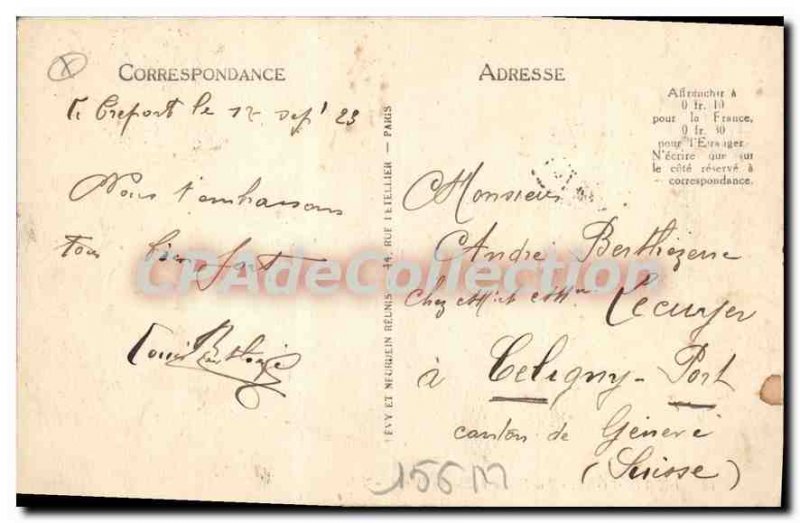 CORRESPONDANCE
Le Treport le 12 Sept 23
Nous t'embrassons
tous bien fort
Louis
ADRESSE
Affranchir à
0 fr. 10
pour la France,
0 fr. 30
pour l'Etranger
N'écrire que sur
le côté réservé à
correspondance.
Monsieur
André Berthezene
chez Mr et Mme Lecuyer
à Celigny-Port
canton de Genève
(Suisse)
LÉVY ET NEURDEIN RÉUNIS — 44, RUE LETELLIER — PARIS
CPAdeCollection
156M